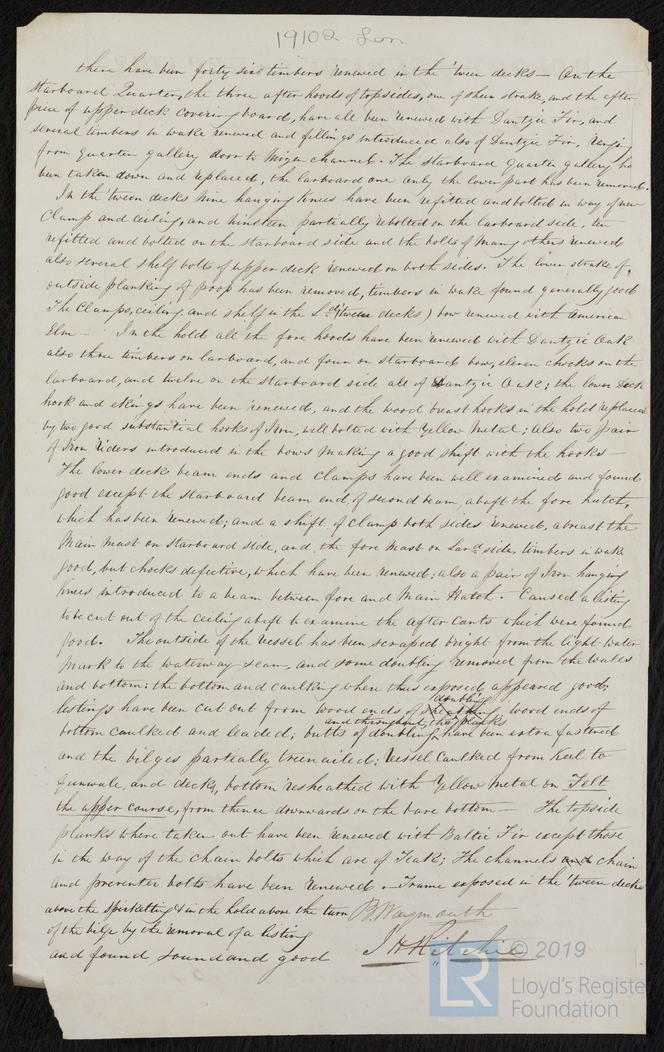 19102 Lon
there have been forty six timbers renewed in the 'tween decks — On the
Starboard Quarter, the three after hoods of topsides, one of sheer strake, and the after
piece of upper deck covering board, have all been renewed with Dantzic Fir, and
several timbers in wake renewed and fillings introduced also of Dantzic Fir, ranging
from quarter gallery door to Mizen channel. The starboard quarter gallery has
been taken down and replaced, the larboard one only the lower part has been removed.
In the 'tween decks nine hanging knees have been refitted and bolted in way of new
Clamp and ceiling, and nineteen partially rebolted on the larboard side, ten
refitted and bolted on the starboard side and the bolts of many others renewed
also several shelf bolts of upper deck renewed on both sides. The lower strake of
outside planking of poop has been removed, timbers in wake found generally good
The Clamps, ceiling and shelf in the 'tween decks) bow renewed with American
Elm — In the hold all the fore hoods have been renewed with Dantzic Oak
also three timbers on larboard, and four on starboard bow, eleven chocks on the
larboard, and twelve on the starboard side all of Dantzic Oak; the lower Deck
hook and ekings have been renewed, and the wood breast hooks in the hold replaced
by two good substantial hooks of Iron, well bolted with Yellow Metal; also two pair
of Iron riders introduced in the bows making a good shift with the hooks —
The lower deck beam ends and Clamps have been well examined and found
good except the starboard beam end of second beam abaft the fore hatch,
which has been renewed; and a shift of clamp both sides renewed, abreast the
Main Mast on starboard side, and, the fore Mast on Lard side, timbers in wake
good, but chocks defective, which have been renewed; also a pair of Iron hanging
knees introduced to a beam between fore and Main Hatch. Caused a listing
to be cut out of the ceiling abaft to examine the after cants which were found
good. The outside of the Vessel has been scraped bright from the light water
mark to the waterway seam, and some doubling removed from the wales
and bottom: the bottom and caulking where thus exposed appeared good;
doubling
listings have been cut out from wood ends of sheathing, wood ends of
and throughout the planks
bottom caulked and leaded; butts of doubling, have been extra fastened
and the bilges partially treenailed; Vessel caulked from Keel to
Gunwale, and decks, bottom resheathed with Yellow Metal on Felt
the upper course, from thence downwards on the bare bottom — The topside
planks where taken out have been renewed with Baltic Fir except those
in the way of the chain bolts which are of Teak; The channels and chain
and preventer bolts have been renewed — Frame exposed in the 'tween decks
above the Spirketting & in the hold above the turn B. Waymouth
of the bilge by the removal of a listing
and found sound and good J H Ritchie
© 2019
LR
Lloyd's Register
Foundation